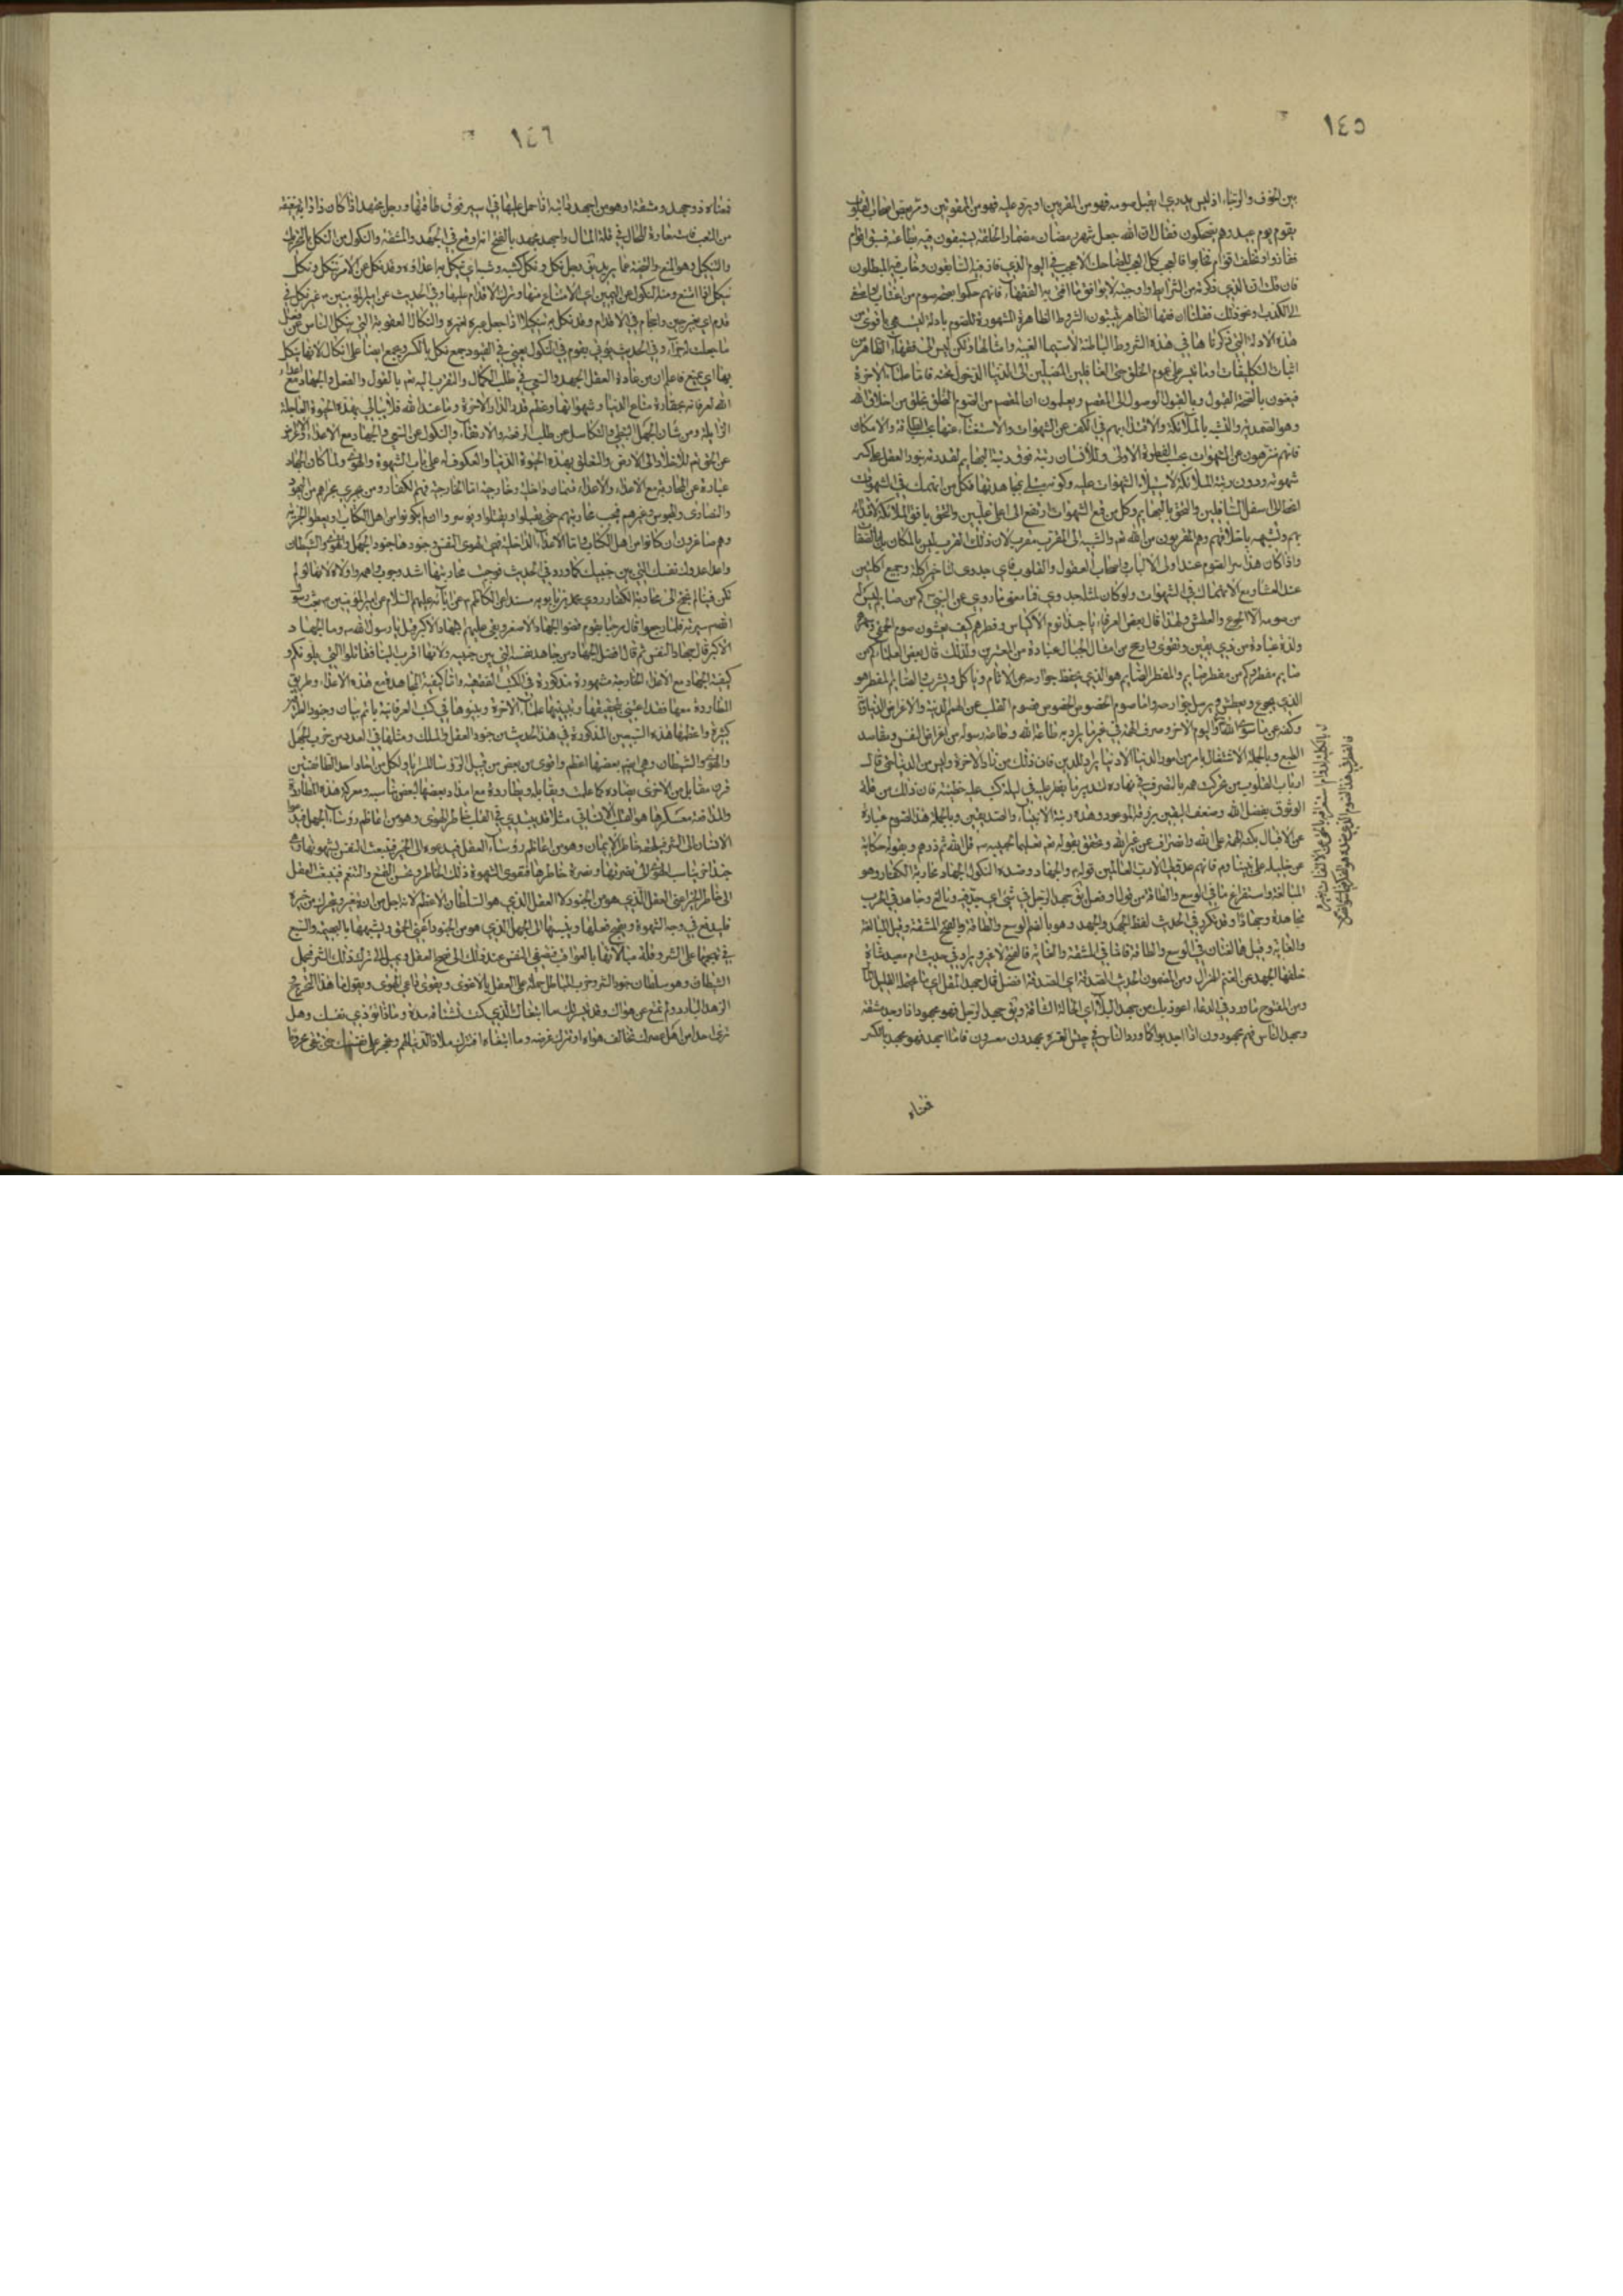 ١٤٥
بين الخوف والرجاء اذ ليس يدري ايقبل صومه فهو من المقربين او يرد عليه فهو من الممقوتين ومر بعض اصحاب القلوب
بقوم يوم عيد وهم يضحكون فقال ان الله جعل شهر رمضان مضمار الخلقه يستبقون فيه بطاعته فسبق اقوام
ففازوا وتخلف اقوام فخابوا فالعجب كل العجب للضاحك اللاعب في اليوم الذي فاز فيه السابقون وخاب فيه المبطلون
فان قلت ان الذي ذكرته من الشرايط واوجبته لا يوافق ما افتى به الفقهاء فانهم حكموا بصحة صوم من
الى الكذب ونحو ذلك فقلنا ان فقهاء الظاهر يثبتون الشروط الظاهرة المشهورة للصوم بادلة ليست هي باقوى من
هذه الادلة التي ذكرناها في هذه الشروط الباطنة لا سيما الغيبة وامثالها ولكن ليس الى فقهاء الظاهر من
اثبات التكليفات الا ما تيسر على عموم الخلق حتى الغافلين المقبلين الى الدنيا الدخول تحته فاما علماء الآخرة
فيعنون بالصحة القبول وبالقبول الوصول الى المقصد ويعلمون ان المقصد من الصوم التخلق بخلق من اخلاق الله
وهو الصمدية والتشبه بالملائكة والاقتداء بهم في الكف عن الشهوات والاستغناء عنها بحسب الطاقة والامكان
فانهم منزهون عن الشهوات بحسب الفطرة الاولى وللانسان رتبة فوق رتبة البهايم لقدرته بنور العقل على كسر
شهوته ودون رتبة الملائكة لاستيلاء الشهوات عليه وكونه مبتلى بمجاهدتها فكل من انهمك في الشهوات
انحط الى اسفل السافلين والتحق بالبهايم وكل من قمع الشهوات ارتفع الى اعلى عليين والتحق بافق الملائكة
بهم وتشبه باخلاقهم وهم المقربون من الله تعالى والتشبه الى المقرب مقرب لان ذلك القرب ليس بالمكان بل بالصفات
واذا كان هذا سر الصوم عند اولى الالباب واصحاب العقول والقلوب فاي جدوى لتاخير اكلة وجمع اكلتين
عند العشاء مع الانهماك في الشهوات ولو كان لمثله جدوى فما معنى ما روي عن النبي كم من صايم ليس له
من صومه الا الجوع والعطش ولهذا قال بعض العرفاء يا حبذا نوم الاكياس وفطرهم كيف يغبنون صوم الحمقى
ولذرة عبادة من ذي يقين وتقوى ارجح من امثال الجبال عبادة من المغترين ولذلك قال بعض العلماء كم من
صايم مفطر وكم من مفطر صايم والمفطر الصايم هو الذي يحفظ جوارحه عن الاثام وياكل ويشرب والصايم المفطر هو
الذي يجوع ويعطش ويرسل جوارحه واما صوم الخصوص الخصوص فصوم القلب عن الهمم الدنية والاغراض الدنياوية
وكفه عن ما سوى الله واليوم الاخر وصرف الهمة في غير ما يراد به طاعة الله وطاعة رسوله من اغراض النفس ومقاصد
الطبع وبالجملة الاشتغال بامر من امور الدنيا الا دنيا يراد للدين فان ذلك من زاد الآخرة وليس من الدنيا حتى قال
ارباب القلوب من تحركت همته بالتصرف في نهاره لتدبير ما يفطر عليه في ليله كتب عليه خطيئة فان ذلك من قلة
الوثوق بفضل الله وضعف اليقين برزقه الموعود وهذه رتبة الانبياء والصديقين وبالجملة هذا الصوم عبارة
عن الاقبال بكنه الهمة على الله وانصراف عن غير الله وتحقق بقوله تعالى تعليما لحبيبه قل الله ثم ذرهم وبقوله حكاية
عن خليله على نبينا وعليه السلام فانهم عدو لي الا رب العالمين قوله والجهاد وضده النكول الجهاد محاربة الكفار وهو
المبالغة واستفراغ ما في الوسع والطاقة من قول او فعل يق جهد الرجل في شيء اي جد فيه وبالغ وجاهد في الحرب
مجاهدة وجهادا وقد تكرر في الحديث لفظ الجَهد والجُهد وهو بالضم الوسع والطاقة وبالفتح المشقة وقيل المبالغة
والغاية وقيل هما لغتان في الوسع والطاقة فاما في المشقة والغاية فالفتح لا غير ويراد في حديث ام معبد شاة
خلفها الجهد عن الغنم الهزال ومن المضموم الحديث الصدقة اي الصدقة افضل قال جهد المقل اي ما يحتمله القليل المال
ومن المفتوح ما ورد في الدعاء اعوذ بك من جهد البلاء اي الحالة الشاقة ويق جهد الرجل فهو مجهود اذا وجد مشقة
وجهد الناس فهم مجهودون اذا اجدبوا كما ورد الناس في جيش العسرة مجهدون معسرون فاما اجهد فهو مجهد بالكسر
فمعناه
١٤٦
فمعناه ذو جهد ومشقة او هو من اجهد دابته اذا حمل عليها في السير فوق طاقتها ورجل مجهد اذا كان ذا دابة ضعيفة
من التعب فاستعاره للحال في قلة المال واجهد مجهد بالفتح انه اوقع في الجهد والمشقة والنكول من النكل بالتحريك
والتنكيل وهو المنع والتنحية عما يريد يق رجل نكل ونكل كشبه وشبه اي ينكل به اعداؤه وقد نكل عن الامر ينكل ونكل
ينكل اذا امتنع ومنه النكول عن اليمين اي الامتناع منها وترك الاقدام عليها وفي الحديث عن امير المؤمنين غير نكل في
قدم اي بغير جبن واحجام في الاقدام وقد نكل به تنكيلا اذا جعله عبرة لغيره والنكال العقوبة التي تنكل الناس عن فعل
ما جعلت له جزاء وفي الحديث يؤتى بقوم في النكول يعني في القيود جمع نكل بالكسر ويجمع ايضا على انكال لانها ينكل
بها اي يمنع فاعلم ان من عادة العقل الجهد والسعي في طلب الكمال والتقرب اليه تعالى بالقول والفعل والجهاد مع اعداء
الله لعرفانه بحقارة متاع الدنيا وشهواتها وعظم قدر الدار الآخرة وما عند الله فلا يبالي بهذه الحيوة العاجلة
الزايلة ومن شان الجهل التبطي والتكاسل عن طلب الرفعة والارتقاء والنكول عن السعي والجهاد مع الاعداء والاعراض
عن الحق ثم للاخلاد الى الارض والتعلق بهذه الحيوة الدنيا والعكوف له على باب الشهوة والهوى ولما كان الجهاد
عبارة عن المحاربة مع الاعداء والاعداء قسمان داخلية وخارجية اما الخارجية فهم الكفار ومن يجري مجراهم من اليهود
والنصارى والمجوس وغيرهم فيجب محاربتهم حتى يقبلوا او يقتلوا او يؤسروا ان لم يكونوا من اهل الكتاب او يعطوا الجزية
وهم صاغرون ان كانوا من اهل الكتاب واما الاعداء الداخلية فهي الهوى النفس وجنودها جنود الجهل والهوى والشيطان
واعدا عدوك نفسك التي بين جنبيك كما ورد في الحديث فوجب محاربتها اشد وجوب واهم واولاه لانها لو لم
تكن فينا لم نحتج الى محاربة الكفار وروي محمد بن بابويه مسندا عن الكاظم عن ابائه عليهم السلام عن امير المؤمنين بعث رسول
الله سرية فلما رجعوا قال مرحبا بقوم قضوا الجهاد الاصغر وبقى عليهم الجهاد الاكبر قيل يا رسول الله وما الجهاد
الاكبر قال جهاد النفس ثم قال افضل الجهاد من جاهد نفسه التي بين جنبيه ولانها اقرب الينا فقاتلوا التي يلونكم و
كيفية الجهاد مع الاعداء الخارجية مشهورة مذكورة في الكتب الفقهية واما كيفية المجاهدة مع هذه الاعداء وطريق
المطاردة معها فقد اعتنى بتحقيقها وتبيينها علماء الآخرة وبينوها في كتب العرفانية باتم بيان وجنود الطرفين
كثيرة واعظمها هذه التسعين المذكورة في هذا الحديث من جنود العقل والملك ومثلها في العدد من حزب الجهل
والهوى والشيطان وهي ايضا بعضها اعظم واقوى من بعض من قبيل الرؤساء للسرايا ولكل من احاد احد الطائفتين
قرن مقابل من الاخرى يضاده كما علمت ويقابله ويطارده مع امداد بعضها لبعض ومعركة هذه المطاردة
والمدافعة معسكرها هو القلب الانساني مثلا قد يبتدي في القلب خاطر الهوى وهو من اعاظم رؤساء الجهل فيدعو
الانسان الى الشر فيلحقه خاطر الايمان وهو من اعاظم رؤساء العقل فيدعوه الى الخير فتنبعث النفس بشهوتها
الى نصرتها ونصرة خاطرها فتقوى الشهوة ذلك الخاطر وتحسن التمتع والتنعم فينبعث العقل
الى خاطر الخير اعني العقل الذي هو من الجنود لا العقل الذي هو السلطان الاعظم لانه اجل من ان
فليدفع في وجه الشهوة ويقبح فعلها وينسبها الى الجهل الذي هو من الجنود اعني الحمق ويشبهها بالبهيمة والسبع
في تهجمها على الشر وقلة مبالاتها بالعواقب فتصغي النفس عند ذلك الى نصح العقل ويميل الى ترك ذلك الشر فيحمل
الشيطان وهو سلطان جنود الشر وحزب الباطل حملة على العقل بالاغوى ويقوى داعي الهوى ويقول ما هذا التحرج
الزهد البارد ولم تمتنع عن هواك وقد الذي كنت مشتاقه مدة وماذا تؤذي نفسك وهل
ترى احدا من اهل عصرك يخالف هواه او يترك غرضه افتترك ملاذ الدنيا لهم وتحجر على نفسك حتى تبقى محروما